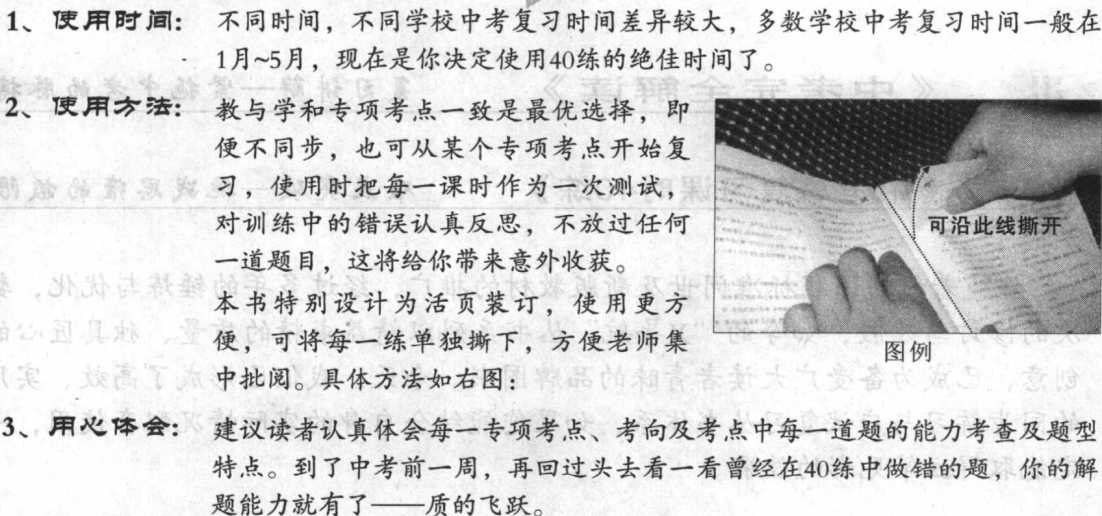 1、使用时间： 不同时间，不同学校中考复习时间差异较大，多数学校中考复习时间一般在
1月~5月，现在是你决定使用40练的绝佳时间了。
2、使用方法： 教与学和专项考点一致是最优选择，即
便不同步，也可从某个专项考点开始复
习，使用时把每一课时作为一次测试，
对训练中的错误认真反思，不放过任何
一道题目，这将给你带来意外收获。
本书特别设计为活页装订，使用更方
便，可将每一练单独撕下，方便老师集
中批阅。具体方法如右图：
可沿此线撕开
图例
3、用心体会： 建议读者认真体会每一专项考点、考向及考点中每一道题的能力考查及题型
特点。到了中考前一周，再回过头去看一看曾经在40练中做错的题，你的解
题能力就有了——质的飞跃。